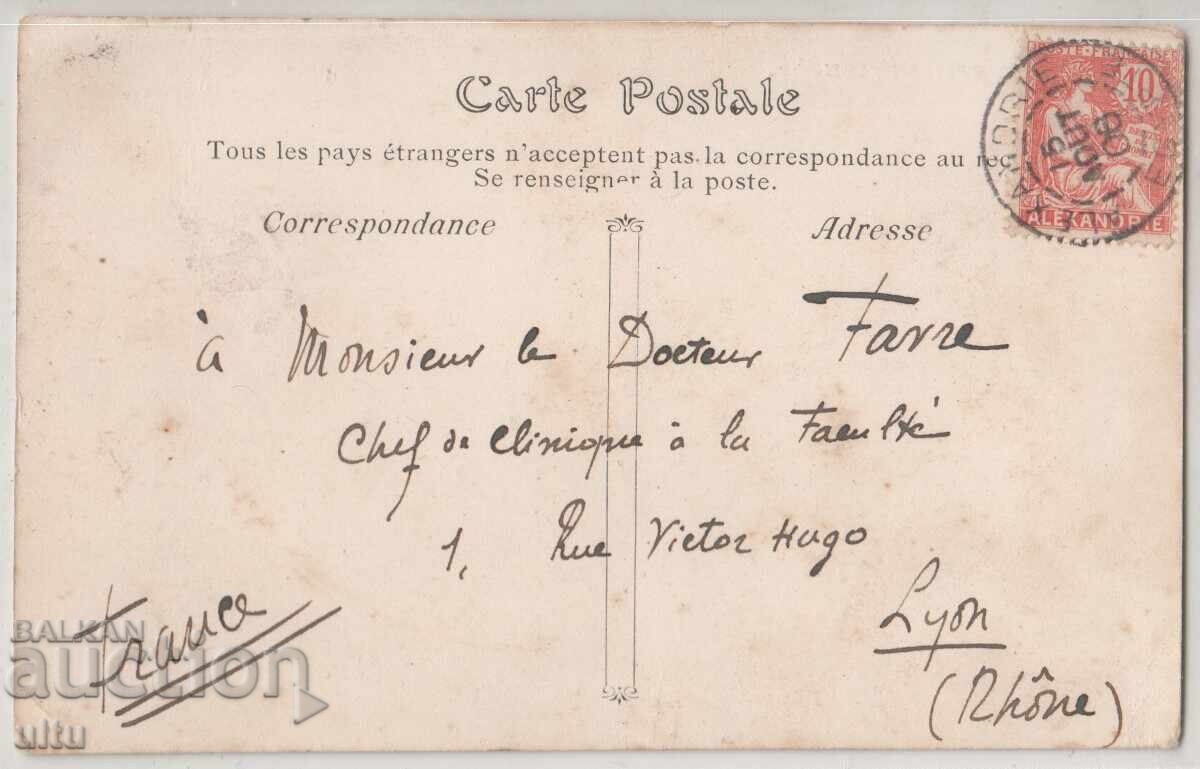 Carte Postale
Tous les pays étrangers n'acceptent pas la correspondance au rec
Se renseigner à la poste.
Correspondance
Adresse
POSTE FRANÇAISE
10
ALEXANDRIE
15
AOUT
08
à Monsieur le Docteur Favre
Chef de Clinique à la Faculté
1, Rue Victor Hugo
Lyon
(Rhône)
France
BALKAN
auction
ultu